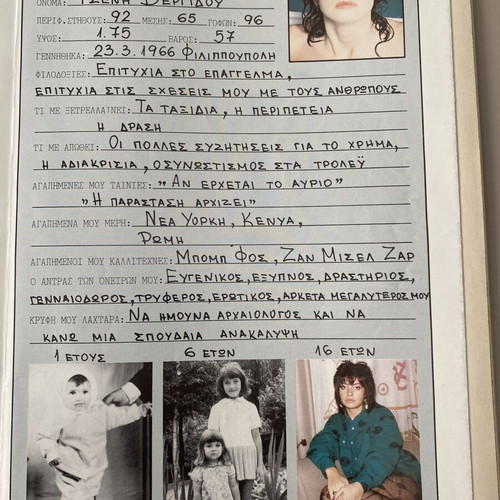 ΟΝΟΜΑ: ΤΖΕΝΗ ΒΕΡΓΙΔΟΥ
ΠΕΡΙΦ.ΣΤΗΘΟΥΣ: 92 ΜΕΣΗΣ: 65 ΓΟΦΩΝ: 96
ΥΨΟΣ: 1.75 ΒΑΡΟΣ: 57
ΓΕΝΝΗΘΗΚΑ: 23.3.1966 ΦΙΛΙΠΠΟΥΠΟΛΗ
ΦΙΛΟΔΟΞΙΕΣ: ΕΠΙΤΥΧΙΑ ΣΤΟ ΕΠΑΓΓΕΛΜΑ,
ΕΠΙΤΥΧΙΑ ΣΤΙΣ ΣΧΕΣΕΙΣ ΜΟΥ ΜΕ ΤΟΥΣ ΑΝΘΡΩΠΟΥΣ
ΤΙ ΜΕ ΞΕΤΡΕΛΛΑΙΝΕΙ: ΤΑ ΤΑΞΙΔΙΑ, Η ΠΕΡΙΠΕΤΕΙΑ
Η ΔΡΑΣΗ
ΤΙ ΜΕ ΑΠΩΘΕΙ: ΟΙ ΠΟΛΛΕΣ ΣΥΖΗΤΗΣΕΙΣ ΓΙΑ ΤΟ ΧΡΗΜΑ,
Η ΑΔΙΑΚΡΙΣΙΑ, Ο ΣΥΝΩΣΤΙΣΜΟΣ ΣΤΑ ΤΡΟΛΕΫ
ΑΓΑΠΗΜΕΝΕΣ ΜΟΥ ΤΑΙΝΙΕΣ: „ΑΝ ΕΡΧΕΤΑΙ ΤΟ ΑΥΡΙΟ"
„Η ΠΑΡΑΣΤΑΣΗ ΑΡΧΙΖΕΙ"
ΑΓΑΠΗΜΕΝΑ ΜΟΥ ΜΕΡΗ: ΝΕΑ ΥΟΡΚΗ, ΚΕΝΥΑ,
ΡΩΜΗ
ΑΓΑΠΗΜΕΝΟΙ ΜΟΥ ΚΑΛΛΙΤΕΧΝΕΣ: ΜΠΟΜΠ ΦΟΣ, ΖΑΝ ΜΙΣΕΛ ΖΑΡ
Ο ΑΝΤΡΑΣ ΤΩΝ ΟΝΕΙΡΩΝ ΜΟΥ: ΕΥΓΕΝΙΚΟΣ, ΕΞΥΠΝΟΣ, ΔΡΑΣΤΗΡΙΟΣ,
ΓΕΝΝΑΙΟΔΩΡΟΣ, ΤΡΥΦΕΡΟΣ, ΕΡΩΤΙΚΟΣ, ΑΡΚΕΤΑ ΜΕΓΑΛΥΤΕΡΟΣ ΜΟΥ
ΚΡΥΦΗ ΜΟΥ ΛΑΧΤΑΡΑ: ΝΑ ΗΜΟΥΝΑ ΑΡΧΑΙΟΛΟΓΟΣ ΚΑΙ ΝΑ
ΚΑΝΩ ΜΙΑ ΣΠΟΥΔΑΙΑ ΑΝΑΚΑΛΥΨΗ
1 ΕΤΟΥΣ 6 ΕΤΩΝ 16 ΕΤΩΝ